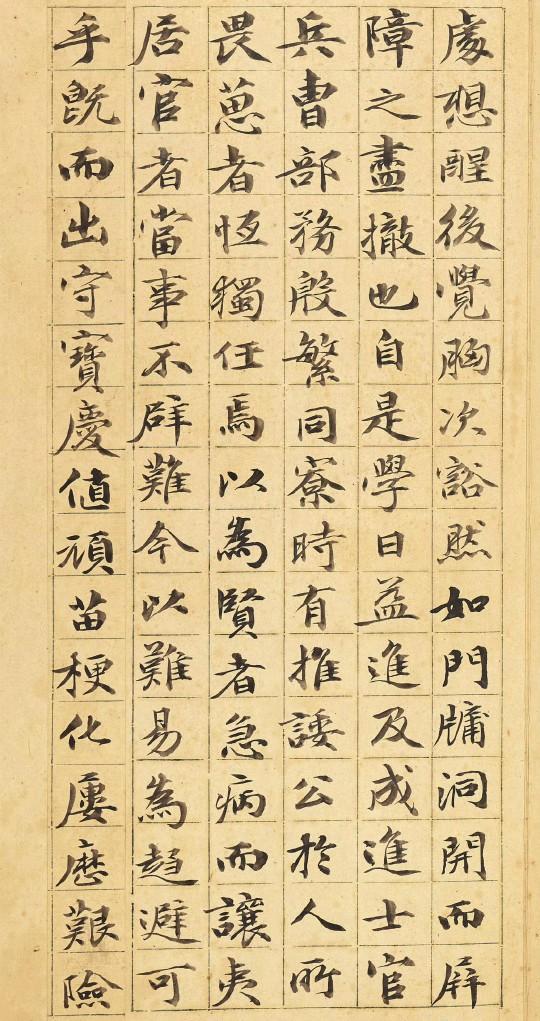 處想醒後覺胸次豁然如門牗洞開而屏
障之盡撤也自是學日益進及成進士官
兵曹部務殷繁同寮時有推諉公於人所
畏葸者恆獨任焉以為賢者急病而讓夷
居官者當事不辟難今以難易為趋避可
乎既而出守寶慶值頑苗梗化屢歷艱險